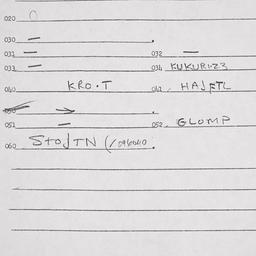 020
030 —
031 — 032 —
033 — 034 KUKURUZZ
040 KRO·T 042 HAJFTL
050 →
051 — 052 GLOMP
060 STOJTN